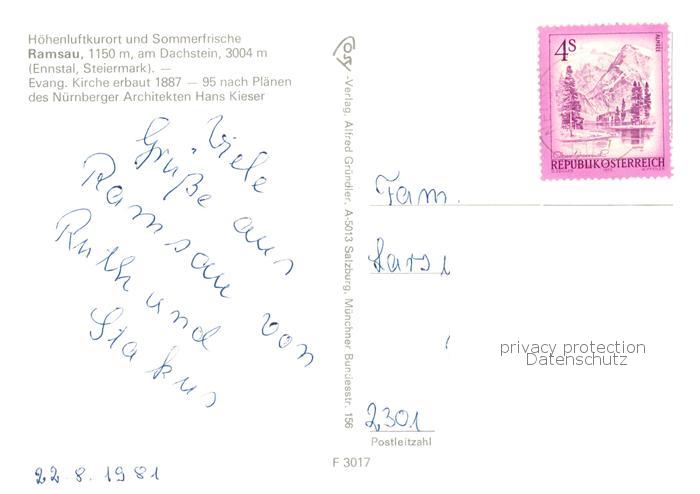 Höhenluftkurort und Sommerfrische
Ramsau, 1150 m, am Dachstein, 3004 m
(Ennstal, Steiermark). —
Evang. Kirche erbaut 1887 — 95 nach Plänen
des Nürnberger Architekten Hans Kieser
Viele
Grüße aus
Ramsau von
Ruth und
22.8.1981
-Verlag, Alfred Gründler, A-5013 Salzburg, Münchner Bundesstr. 156
F 3017
4S
ALMSEE
REPUBLIK ÖSTERREICH
Fam.
Lars
privacy protection
Datenschutz
2301
Postleitzahl